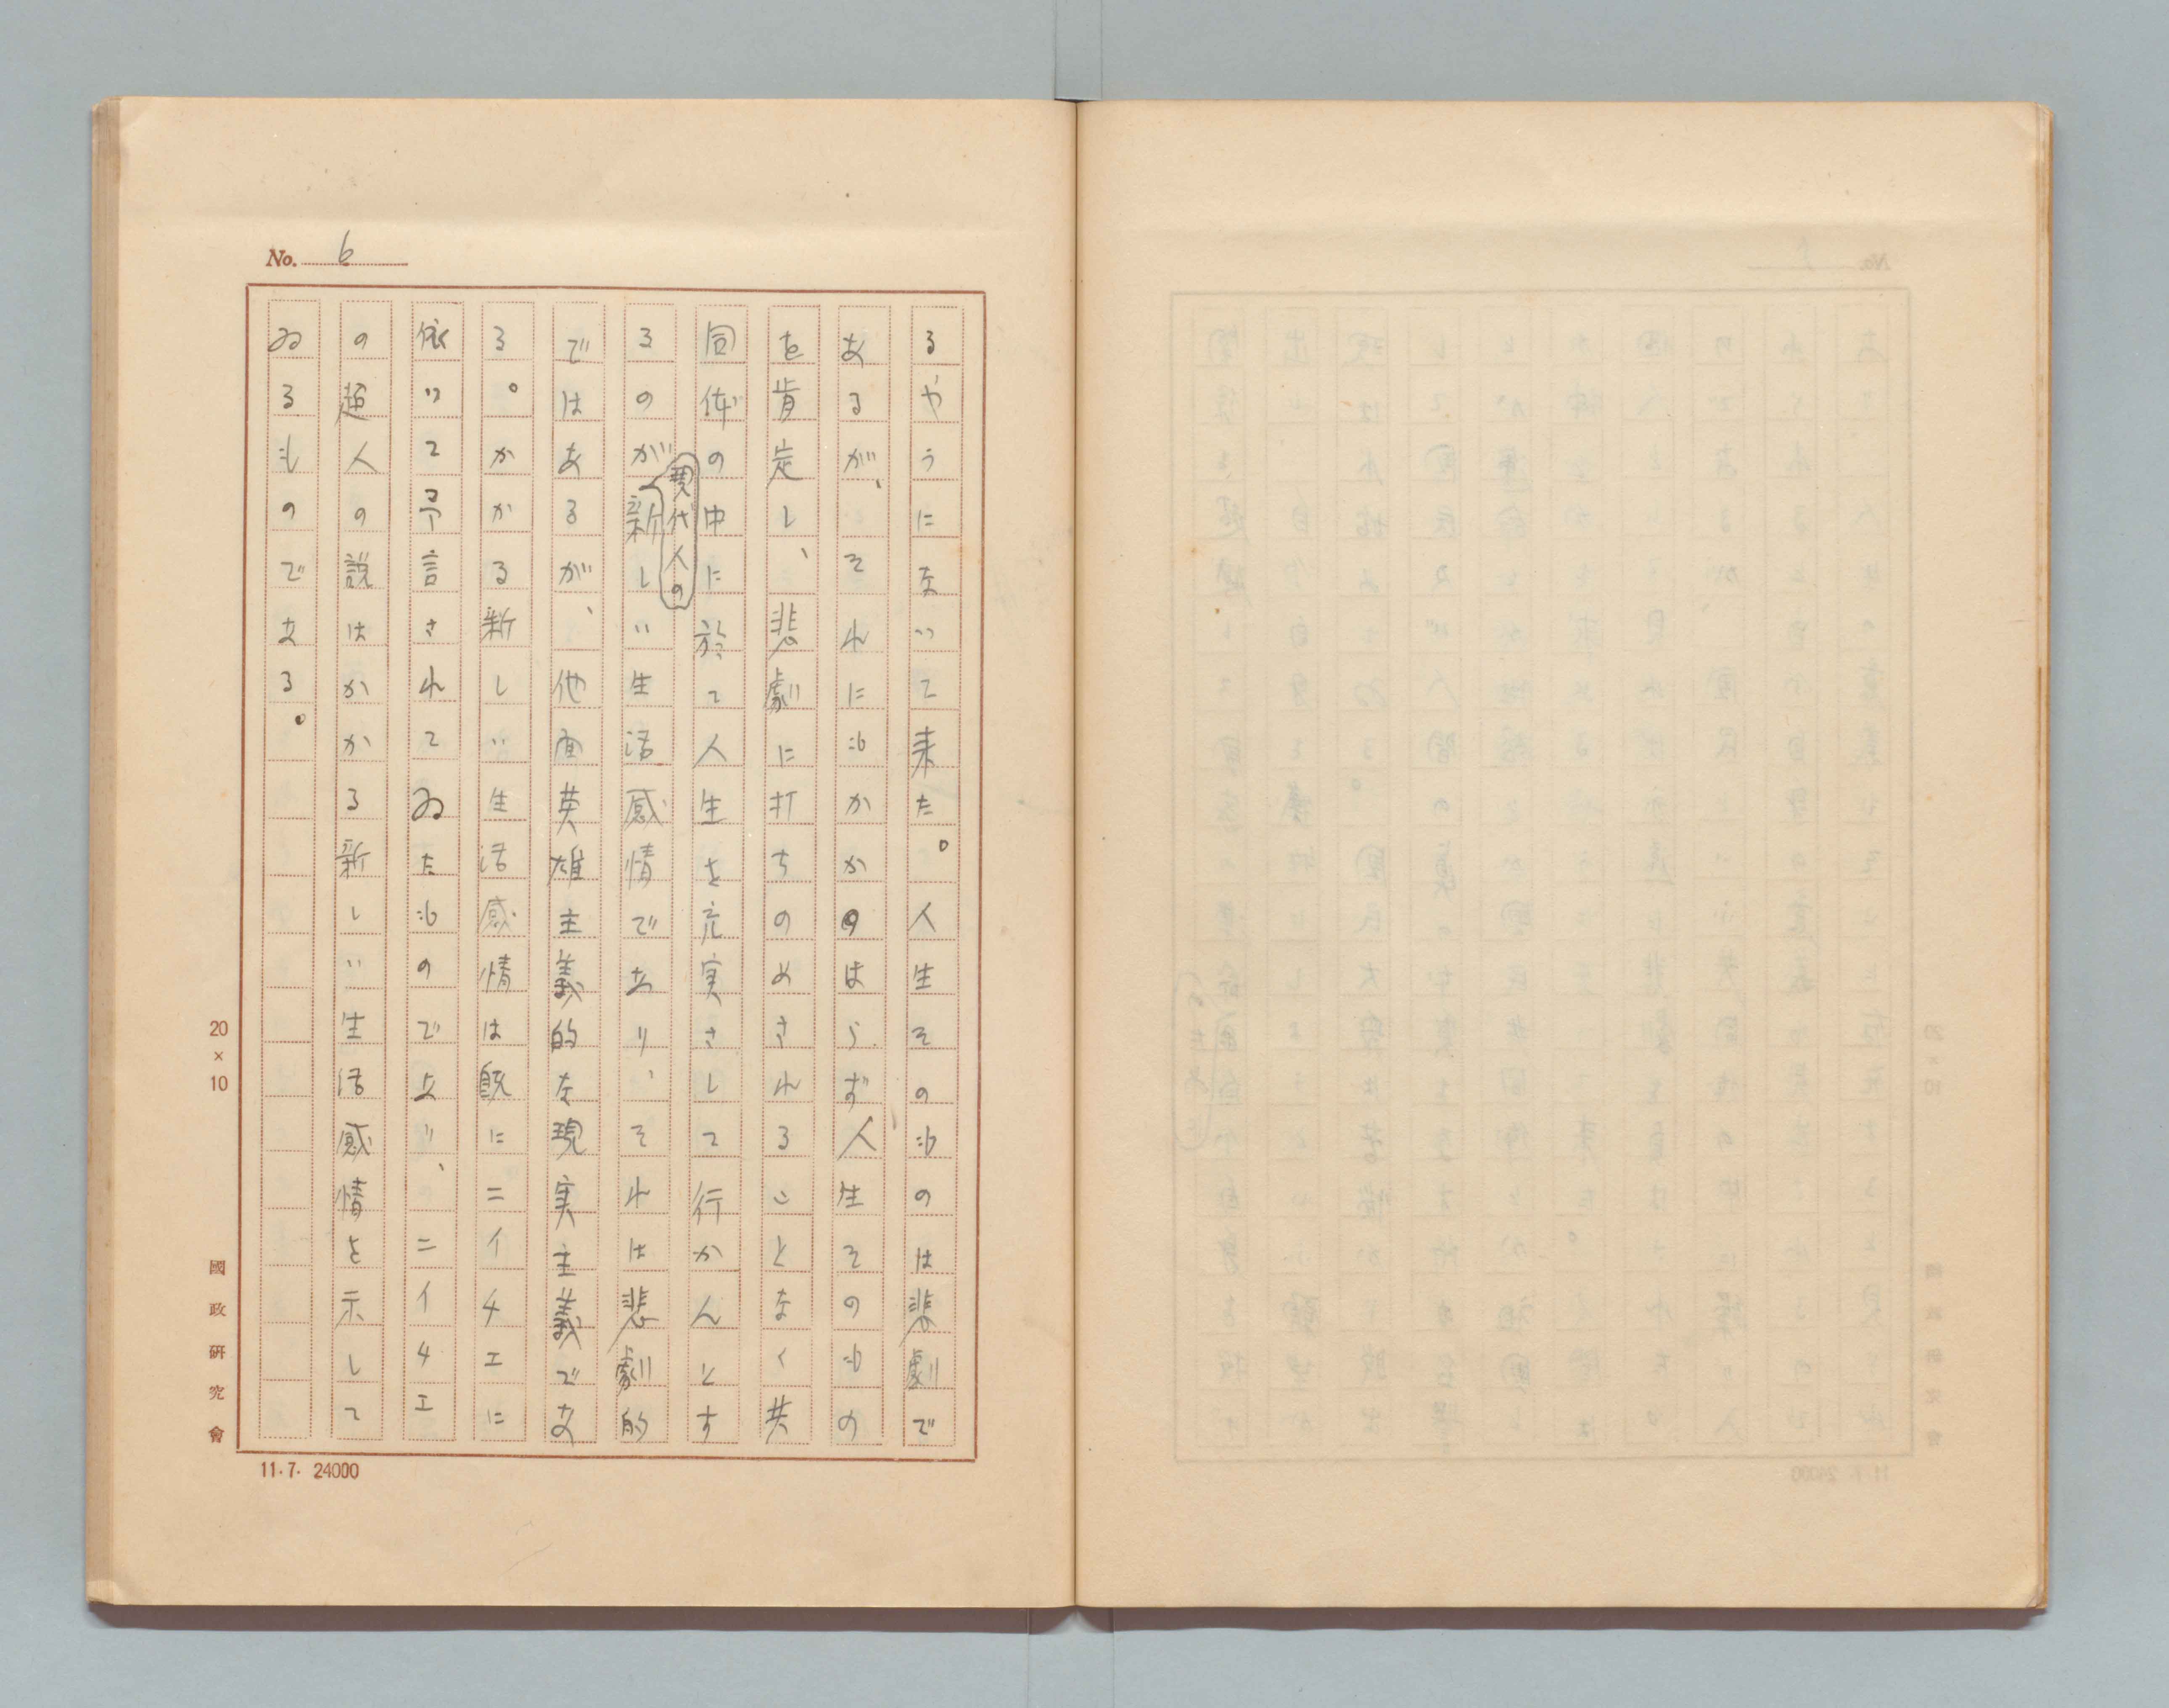 No. 6
るやうになつて来た。人生そのものは悲劇で
あるが、それにもかかはらず人生そのもの
を肯定し、悲劇に打ちのめされることなく共
同体の中に於て人生を充実さして行かんとす
るのが現代人の新しい生活感情であり、それは悲劇的
ではあるが、他面英雄主義的な現実主義であ
る。かかる新しい生活感情は既にニイチエに
依つて予言されてゐたものであり、ニイチエ
の超人の説はかかる新しい生活感情を示して
ゐるものである。
20×10
國政研究會
11.7. 24000